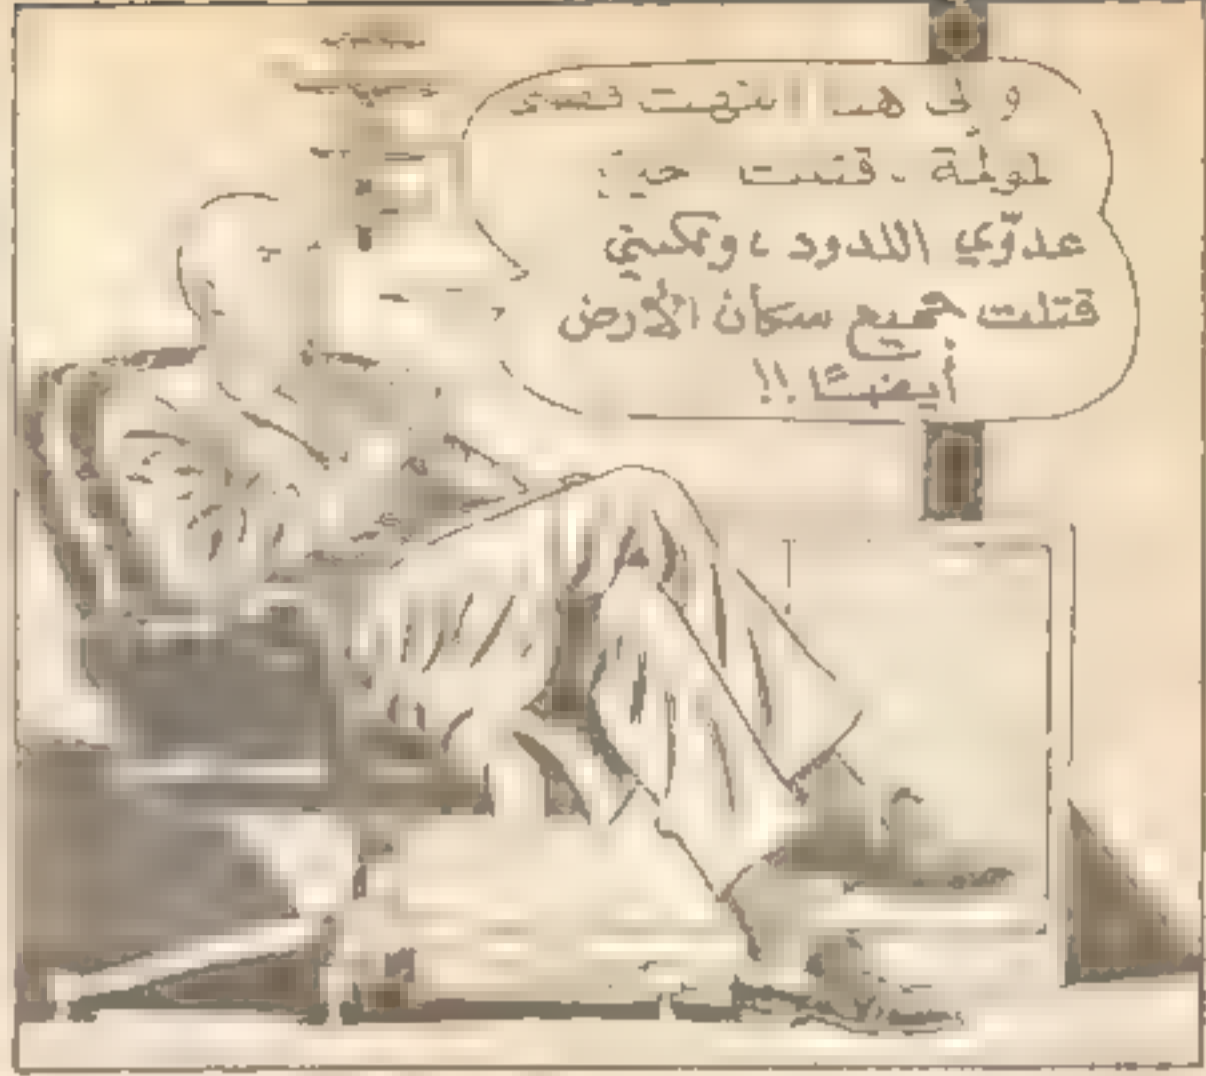 و إلى هنا انتهت قصتى
الطويلة ، قتلت
عدوّي اللدود ، ولكنني
قتلت جميع سكان الأرض
أيضًا !!